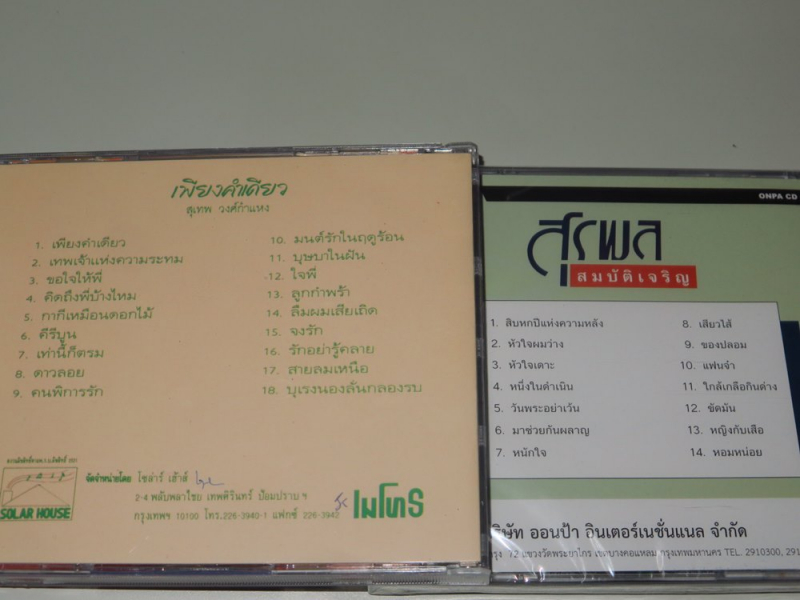 เพียงคำเดียว
สุเทพ วงศ์กำแหง
1. เพียงคำเดียว
2. เทพเจ้าแห่งความระทม
3. ขอใจให้พี่
4. คิดถึงพี่บ้างไหม
5. กากีเหมือนดอกไม้
6. คีรีบูน
7. เท่านี้ก็ตรม
8. ดาวลอย
9. คนพิการรัก
10. มนต์รักในฤดูร้อน
11. บุษบาในฝัน
12. ใจพี่
13. ลูกกำพร้า
14. ลืมผมเสียเถิด
15. จงรัก
16. รักอย่ารู้คลาย
17. สายลมเหนือ
18. บุเรงนองลั่นกลองรบ
SOLAR HOUSE
จัดจำหน่ายโดย โซล่าร์ เฮ้าส์
2-4 พลับพลาไชย เทพศิรินทร์ ป้อมปราบ ฯ
กรุงเทพฯ 10100 โทร.226-3940-1 แฟกซ์ 226-3942
เมโทร
ONPA CD
สุรพล
สมบัติเจริญ
1. สิบหกปีแห่งความหลัง
2. หัวใจผมว่าง
3. หัวใจเดาะ
4. หนึ่งในดำเนิน
5. วันพระอย่าเว้น
6. มาช่วยกันผลาญ
7. หนักใจ
8. เสียวไส้
9. ของปลอม
10. แฟนจ๋า
11. ใกล้เกลือกินด่าง
12. ขัดมัน
13. หญิงกับเสือ
14. หอมหน่อย
ริษัท ออนป้า อินเตอร์เนชั่นแนล จำกัด
กรุง 72 แขวงวัดพระยาไกร เขตบางคอแหลม กรุงเทพมหานคร TEL. 2910300, 291